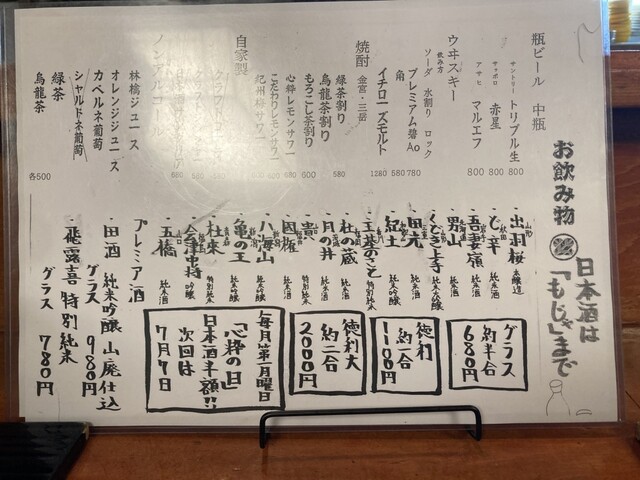 お飲み物
瓶ビール 中瓶
サントリー トリプル生 800
サッポロ 赤星 800
アサヒ マルエフ 800
ウヰスキー
飲み方
ソーダ 水割り ロック
プレミアム 碧Ao 780
角 580
イチローズモルト 1280
焼酎
金宮・三岳
緑茶割り 580
烏龍茶割り
もろこし茶割り 600
自家製
心粋レモンサワー 680
こだわりレモンサワー 600
紀州梅サワー
クラフト
ノンアルコール
林檎ジュース
オレンジジュース
カベルネ葡萄
シャルドネ葡萄
緑茶
烏龍茶
各500
日本酒は
「もじきまで」
山形 出羽桜 本醸造
秋田 ど辛 純米酒
岩手 吾妻嶺 純米酒
男山 純米酒
くどき上手 純米吟醸
田光 純米酒
紀土 純米吟醸
特別純米
杜の蔵 純米酒
月の井 純米酒
貴 純米酒
国権 純米酒
八海山 純米吟醸
亀の王 純米吟醸
杜來 特別純米
会津中将 吟醸
五橋 純米酒
グラス
約半合
680円
徳利
約一合
1100円
徳利大
約二合
2000円
毎月第一月曜日
「心粋の日」
日本酒半額!!
次回は
7月7日
プレミア酒
・田酒 純米吟醸 山廃仕込
グラス 980円
・飛露喜 特別純米
グラス 780円